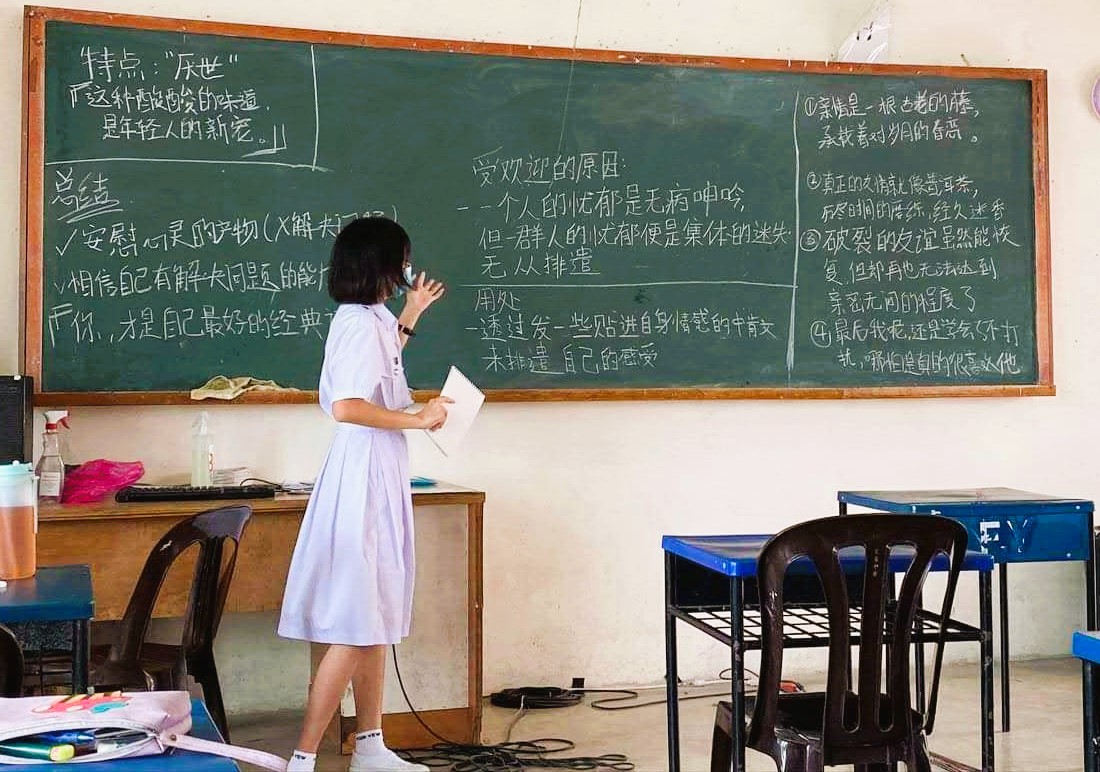 特点："厌世"
『这种酸酸的味道，
是年轻人的新宠。』
总结
✓安慰心灵的产物(X解决问题)
✓相信自己有解决问题的能
『你，才是自己最好的经典
受欢迎的原因:
- 一个人的忧郁是无病呻吟,
但一群人的忧郁便是集体的迷失
无从排遣
用处
-透过发一些贴进自身情感的中
来排遣自己的感受
①亲情是一根古老的藤,
承载着对岁月的眷恋。
②真正的友情就像普洱茶,
历尽时间的磨练,经久迷香
③破裂的友谊虽然能恢
复,但却再也无法达到
亲密无间的程度了
④最后我呢,还是学会了不打
扰,哪怕是真的很喜欢他